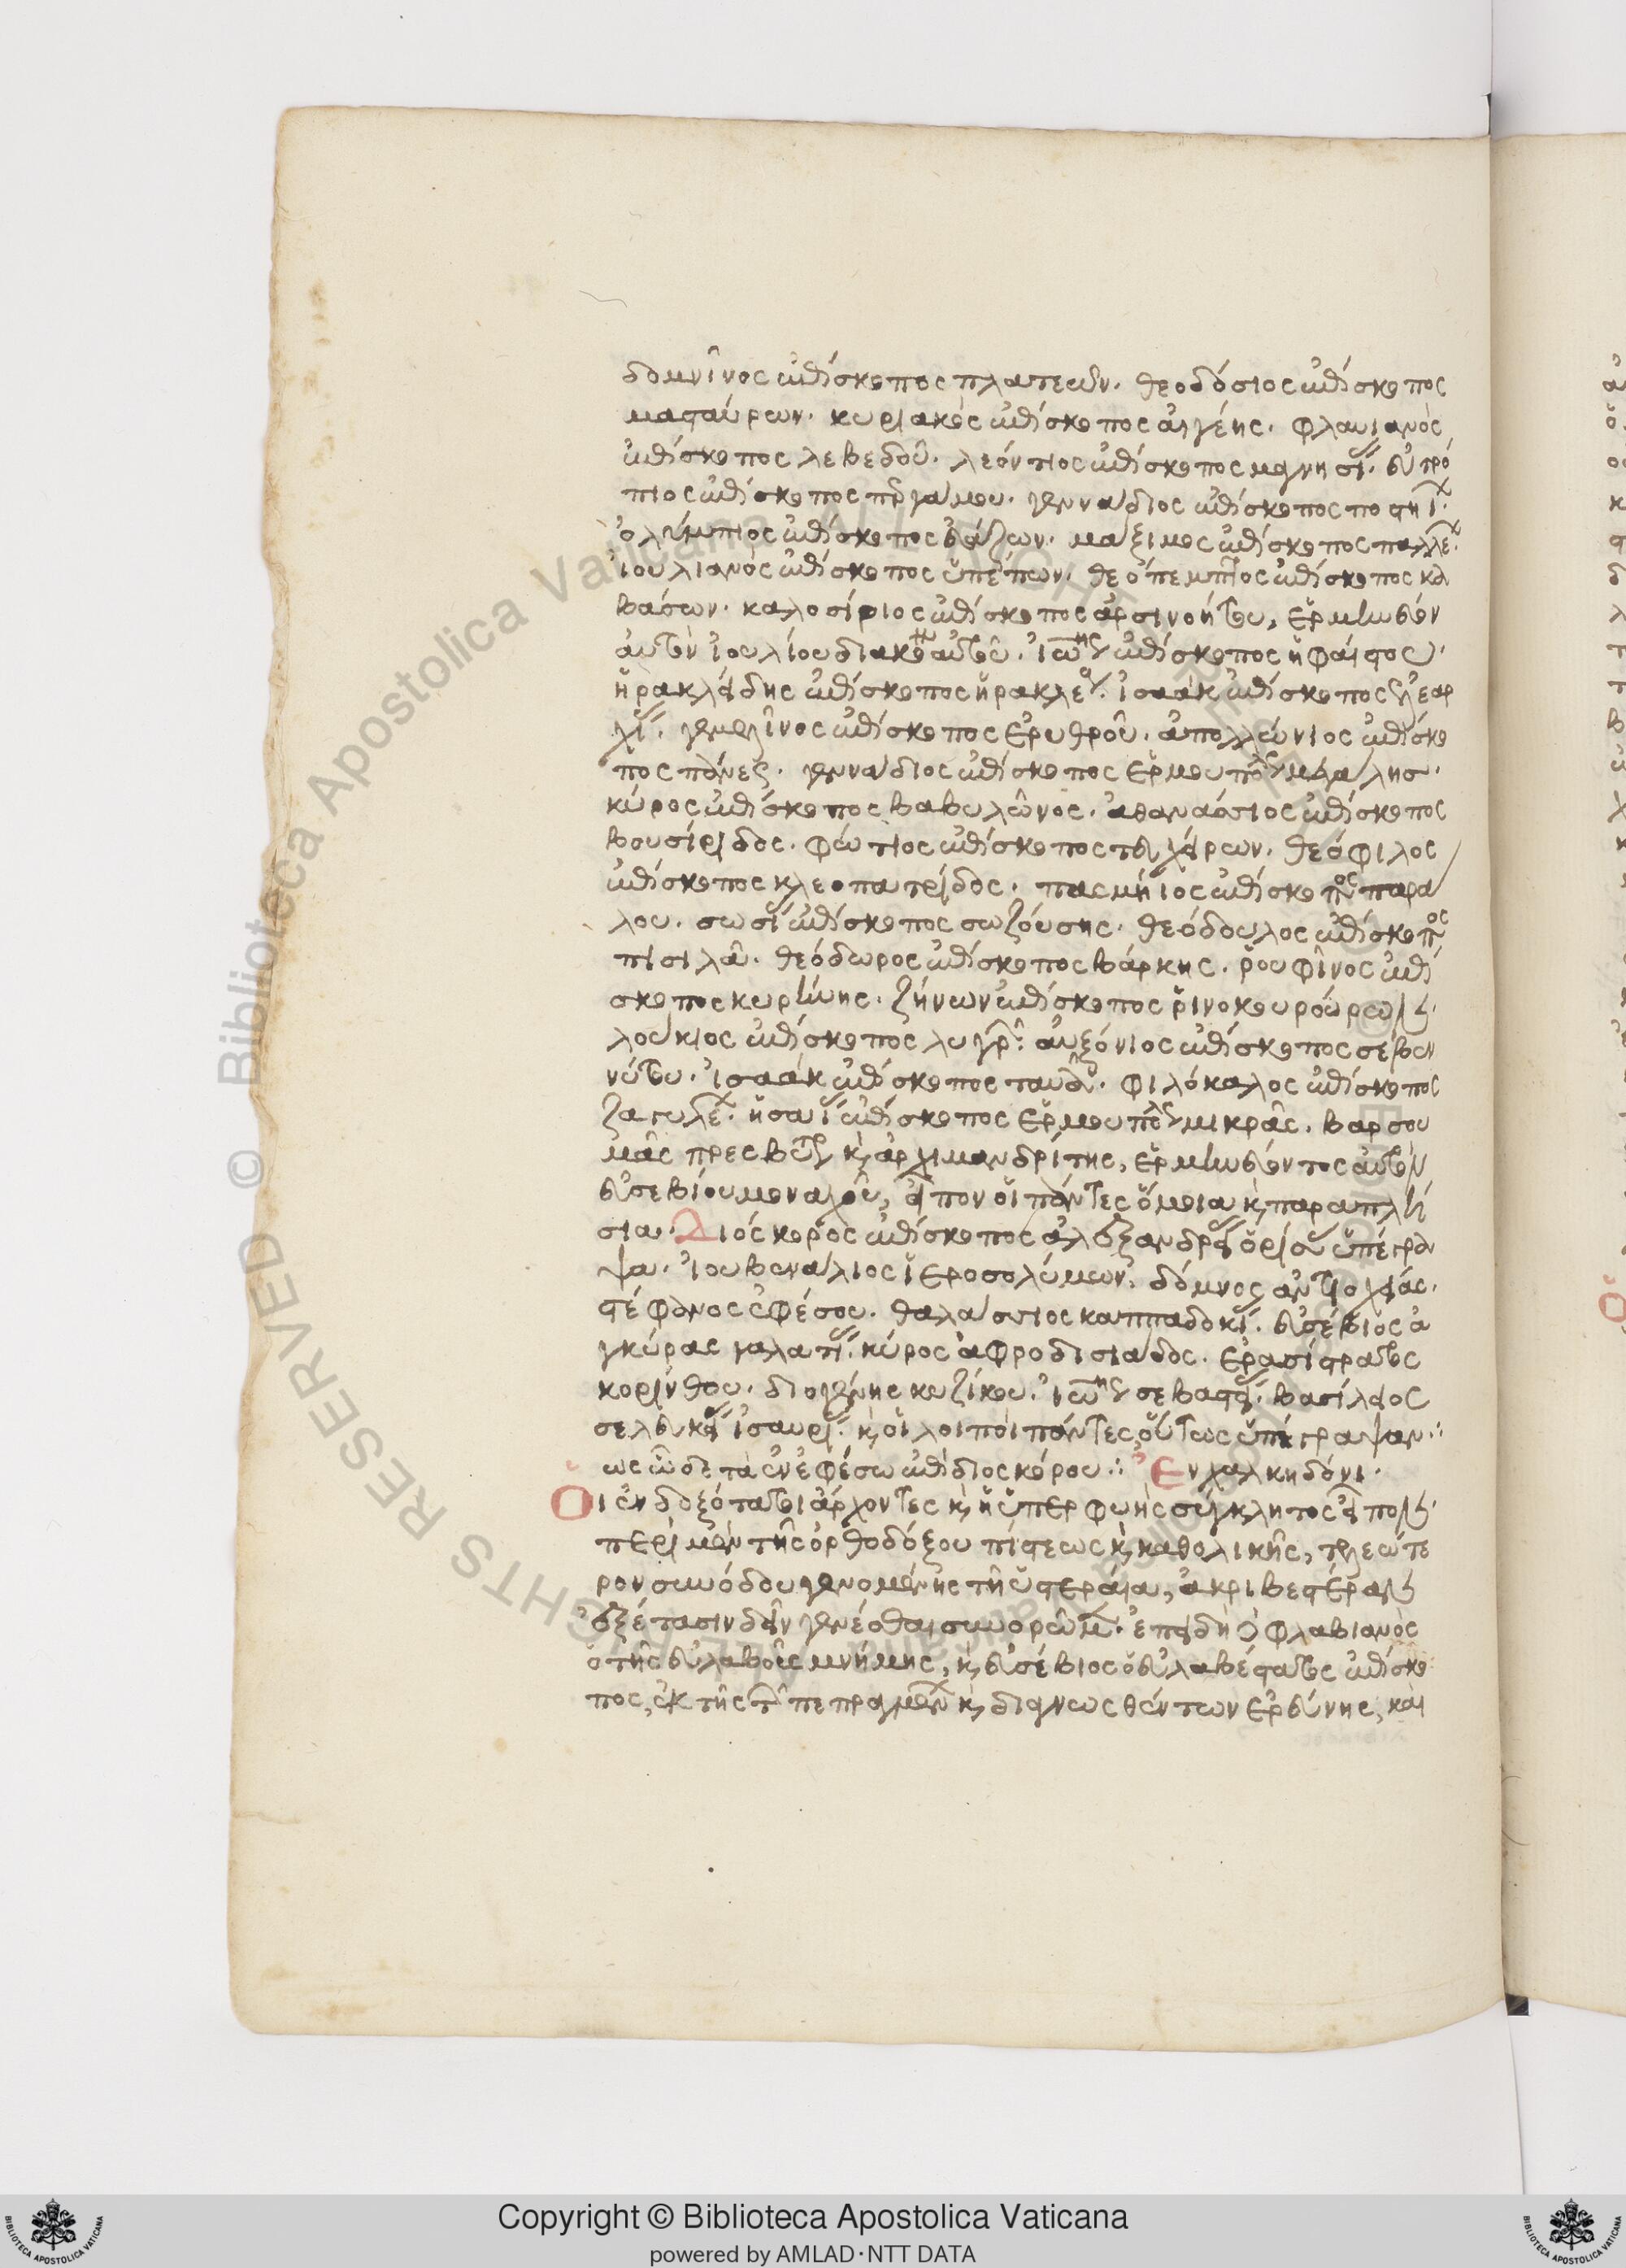 δομνῖνος ἐπίσκοπος πλατεῶν. θεοδόσιος ἐπίσκοπος
μασταύρων. κυριακὸς ἐπίσκοπος αἰγέης. φλαυιανὸς
ἐπίσκοπος λεβεδοῦ. λεόντιος ἐπίσκοπος μαγνησί. εὐτρό
πιος ἐπίσκοπος περγάμου. γεννάδιος ἐπίσκοπος
ὀλύμπιος ἐπίσκοπος εὐάζων. μάξιμος ἐπίσκοπος
ἰουλιανὸς ἐπίσκοπος ὑπέπων. θεόπεμπτος ἐπίσκοπος κα
βάσων. καλοσίριος ἐπίσκοπος ἀρσινοήτου, ἑρμηνεύον
αὐτὸν ἰουλίου διακόν αὐτοῦ. ἰω ἐπίσκοπος ἡφαίστου.
ἡρακλείδης ἐπίσκοπος ἡρακλε. ἰσαὰκ ἐπίσκοπος ἐλεαρ
χί. γεμελῖνος ἐπίσκοπος ἐρυθροῦ. ἀπολλώνιος ἐπίσκο
πος τάνεως. γεννάδιος ἐπίσκοπος ἑρμουπόλεως μεγάλης.
κύρος ἐπίσκοπος βαβυλῶνος. ἀθανάσιος ἐπίσκοπος
βουσίριδος. φώτιος ἐπίσκοπος τευχείρων. θεόφιλος
ἐπίσκοπος κλεοπατρίδος. πασμήιος ἐπίσκοπος παρα
λου. σωσί ἐπίσκοπος σωζούσης. θεόδουλος ἐπίσκοπος
τισιλᾶ. θεόδωρος ἐπίσκοπος βάρκης. ῥουφῖνος ἐπί
σκοπος κυρήνης. ζήνων ἐπίσκοπος ῥινοκουρούρων.
λούκιος ἐπίσκοπος ζυγρ. αὐξόνιος ἐπίσκοπος σεβεν
νύτου. ἰσαὰκ ἐπίσκοπος ταυ. φιλόκαλος ἐπίσκοπος
ζαγυλε. ἡσαΐ ἐπίσκοπος ἑρμουπόλεως μικρᾶς. βαρσου
μᾶς πρεσβύτερος κ, ἀρχιμανδρίτης, ἑρμηνεύοντος αὐτὸν
εὐσεβίου μοναχοῦ, εἶπον οἱ πάντες ὅμοια κ, παραπλή
σια. Διόσκορος ἐπίσκοπος ἀλεξανδρεί ὁρίσας ὑπέγρα
ψα. ἰουβενάλιος ἱεροσολύμων. δόμνος ἀντιοχείας.
στέφανος ἐφέσου. θαλάσσιος καππαδοκί. εὐσέβιος ἀ
γκύρας γαλατί. κύρος ἀφροδισιάδος. ἐρασίστρατος
κορίνθου. διογένης κυζίκου. ἰω σεβαστεί. βασίλειος
σελευκεί ἰσαυρί. κ, οἱ λοιποὶ πάντες, οὕτως ὑπέγραψαν.:
ὡς ὧδε τὰ ἐν ἐφέσω ἐπὶ διοσκόρου.: Ἐν χαλκηδόνι.
Οἱ ἐνδοξότατοι ἄρχοντες κ, ἡ ὑπερφυὴς σύγκλητος εἶπον.
περὶ μὲν τῆς ὀρθοδόξου πίστεως κ, καθολικῆς, τελεώτε
ρον συνόδου γενομένης τῇ ὑστεραία, ἀκριβεστέραν
ἐξέτασιν δεῖν γενέσθαι συνορῶμ. ἐπειδὴ ὁ φλαβιανὸς
ὁ τῆς εὐλαβοῦς μνήμης, κ, εὐσέβιος ὁ εὐλαβέστατος ἐπίσκο
πος, ἐκ τῆς τῶν πεπραγμέν κ, διαγνωσθέντων ἐρεύνης, καὶ
Copyright © Biblioteca Apostolica Vaticana
powered by AMLAD·NTT DATA